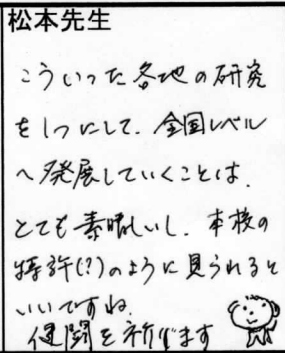 松本先生
こういった各地の研究
を1つにして、全国レベル
へ発展していくことは、
とても素晴しいし、本校の
特許(?)のように見られると
いいですね。
健闘を祈ります